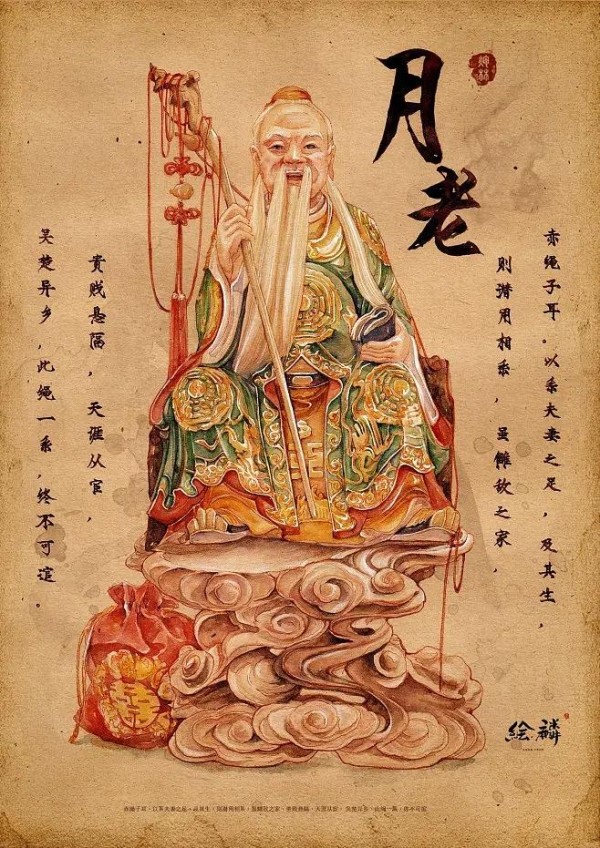 月老
赤绳子耳。以系夫妻之足,及其生,
则潜用相系,虽雠敌之家,
贵贱悬隔,天涯从宦,
吴楚异乡,此绳一系,终不可逭。
絵麟